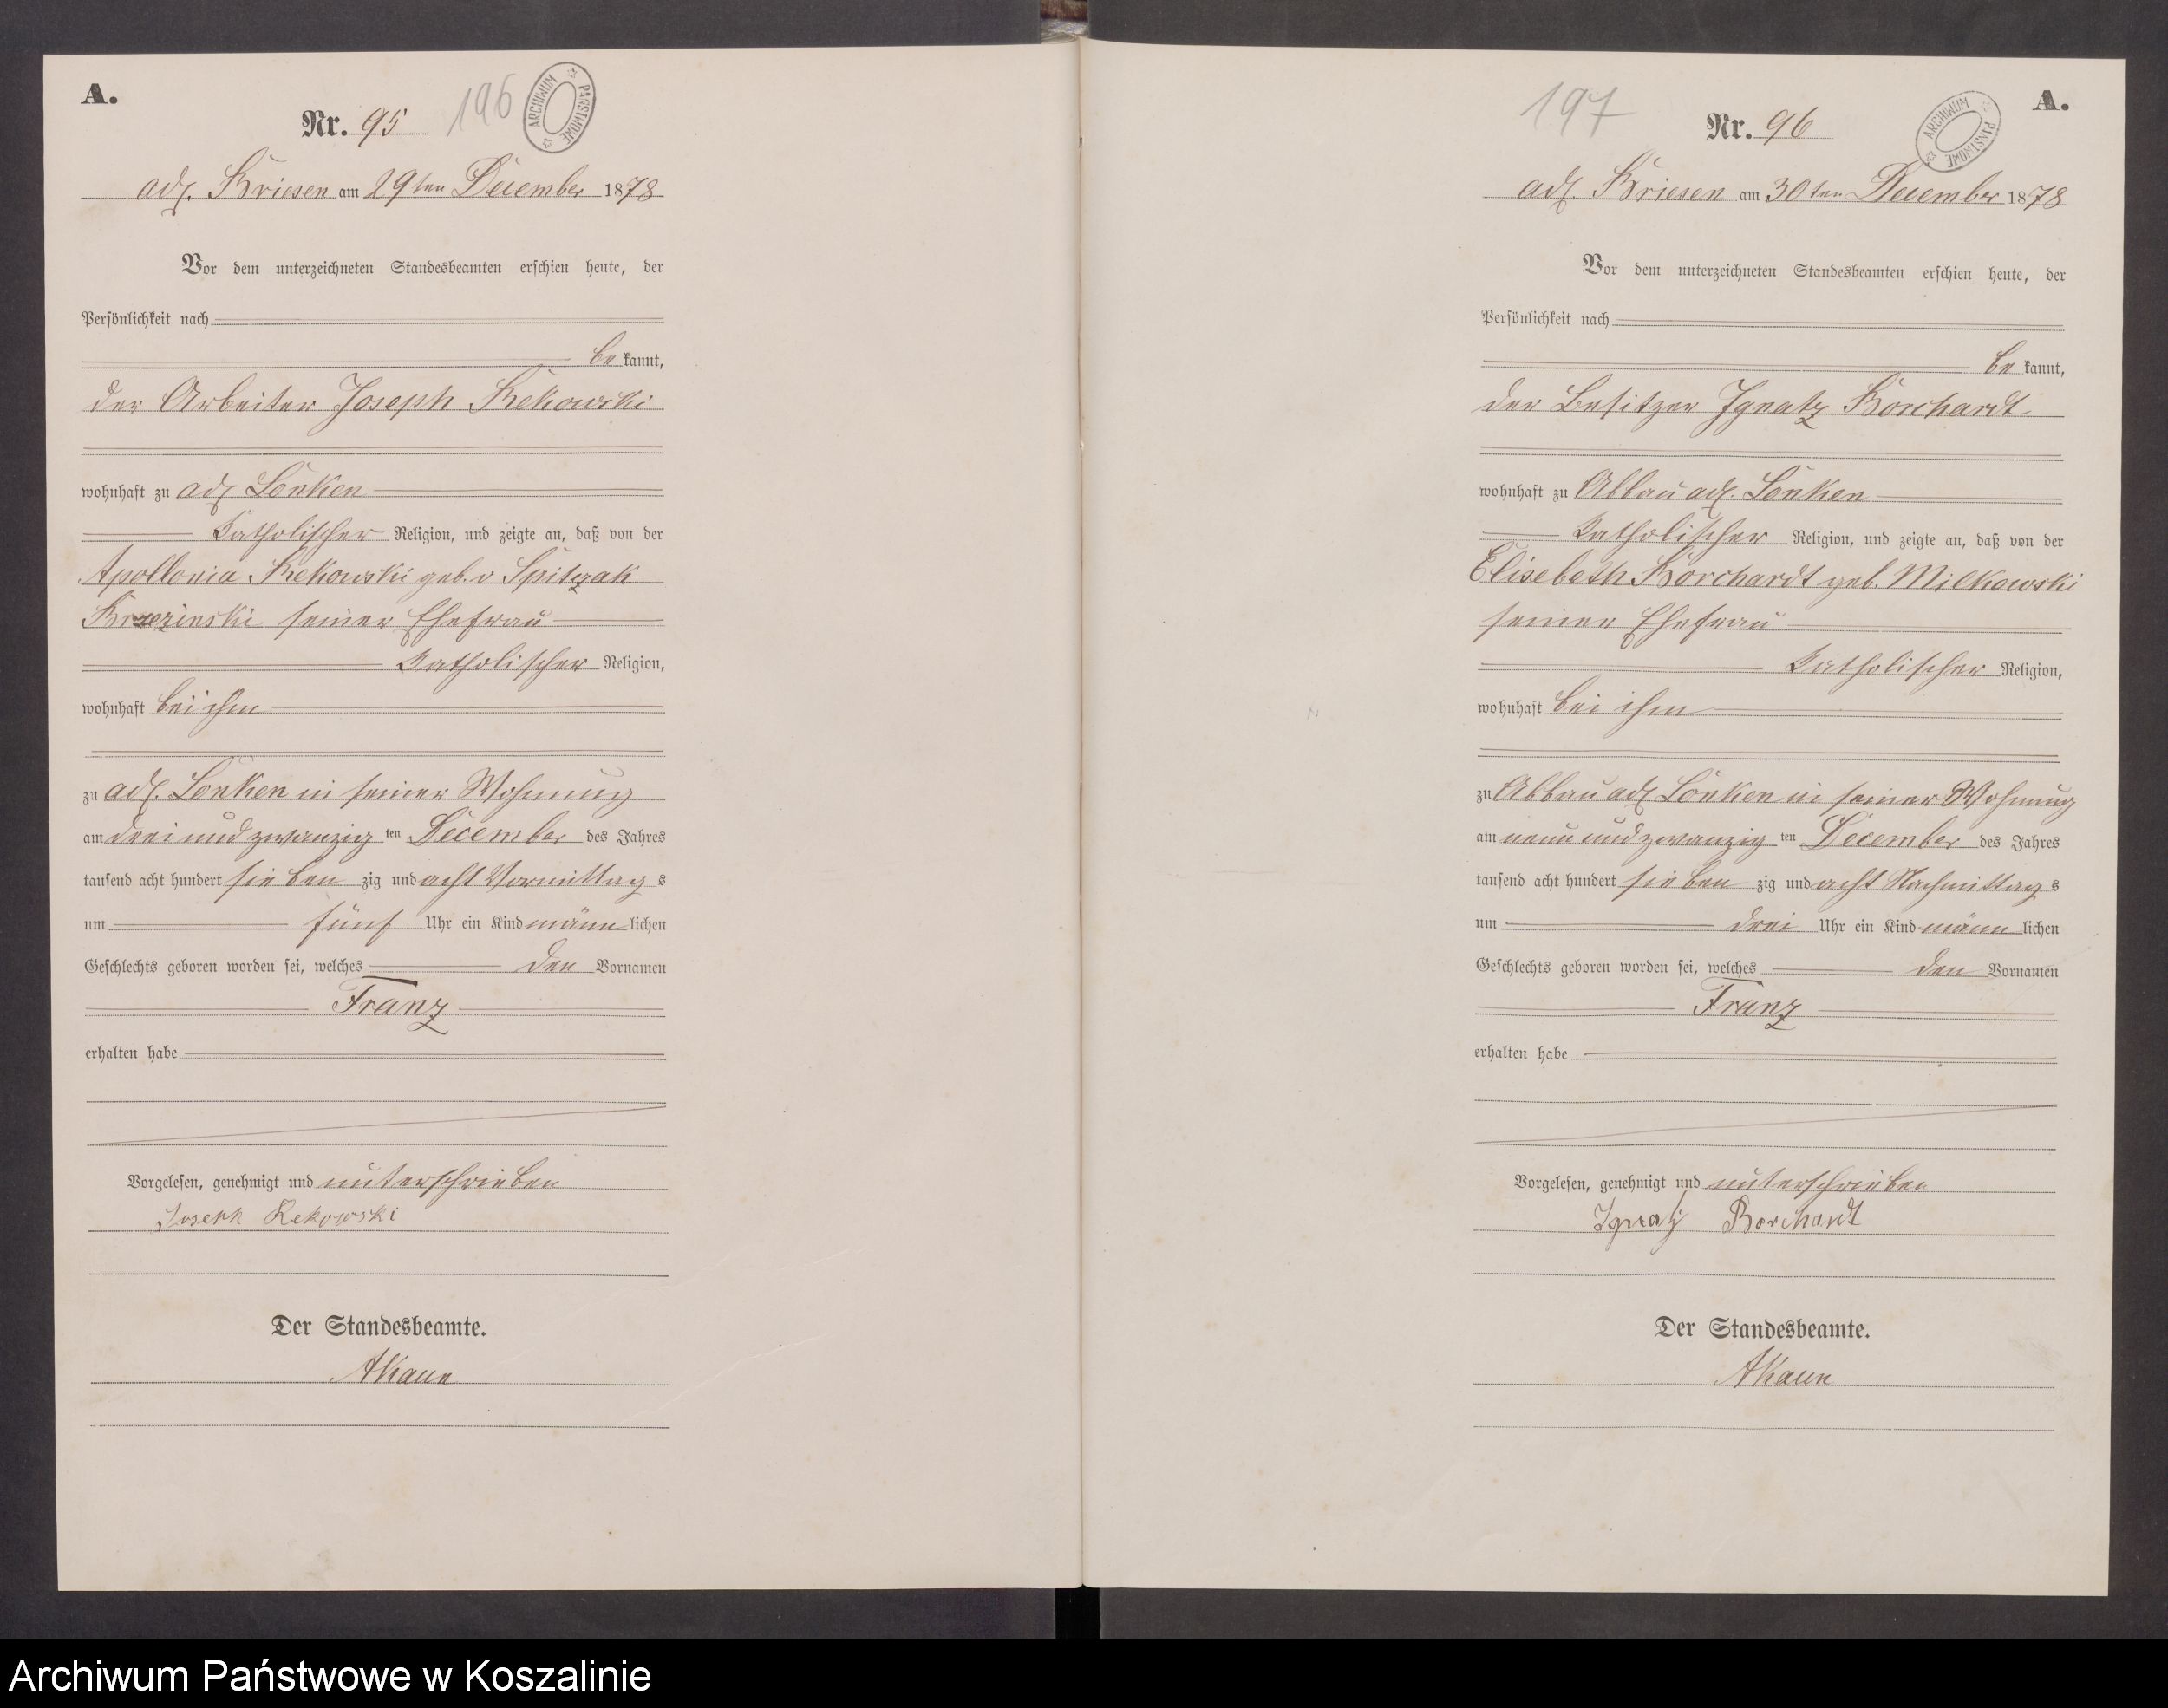 A.
Nr. 95
196
ARCHIWUM PAŃSTWOWE
adl. Kriesen am 29ten December 1878
Vor dem unterzeichneten Standesbeamten erschien heute, der
Persönlichkeit nach
be kannt,
der Arbeiter Joseph Rekowski
wohnhaft zu adl Lonken
Katholischer Religion, und zeigte an, daß von der
Apollonia Rekowski geb. v Spitzak
Brzezinski seiner Ehefrau
Katholischer Religion,
wohnhaft bei ihm
zu adl. Lonken in seiner Wohnung
am drei und zwanzig ten December des Jahres
tausend acht hundert sieben zig und acht Vormittag s
um fünf Uhr ein Kind männ lichen
Geschlechts geboren worden sei, welches den Vornamen
Franz
erhalten habe
Vorgelesen, genehmigt und unterschrieben
Joseph Rekowski
Der Standesbeamte.
AKaun
197
Nr. 96
ARCHIWUM PAŃSTWOWE
A.
adl. Kriesen am 30ten December 1878
Vor dem unterzeichneten Standesbeamten erschien heute, der
Persönlichkeit nach
be kannt,
der Besitzer Ignatz Borchardt
wohnhaft zu Abbau adl. Lonken
Katholischer Religion, und zeigte an, daß von der
Elisebeth Borchardt geb. Milkowski
seiner Ehefrau
Katholischer Religion,
wohnhaft bei ihm
zu Abbau adl Lonken in seiner Wohnung
am neun und zwanzig ten December des Jahres
tausend acht hundert sieben zig und acht Nachmittag s
um drei Uhr ein Kind männ lichen
Geschlechts geboren worden sei, welches den Vornamen
Franz
erhalten habe
Vorgelesen, genehmigt und unterschrieben
Ignatz Borchardt
Der Standesbeamte.
AKaun
Archiwum Państwowe w Koszalinie